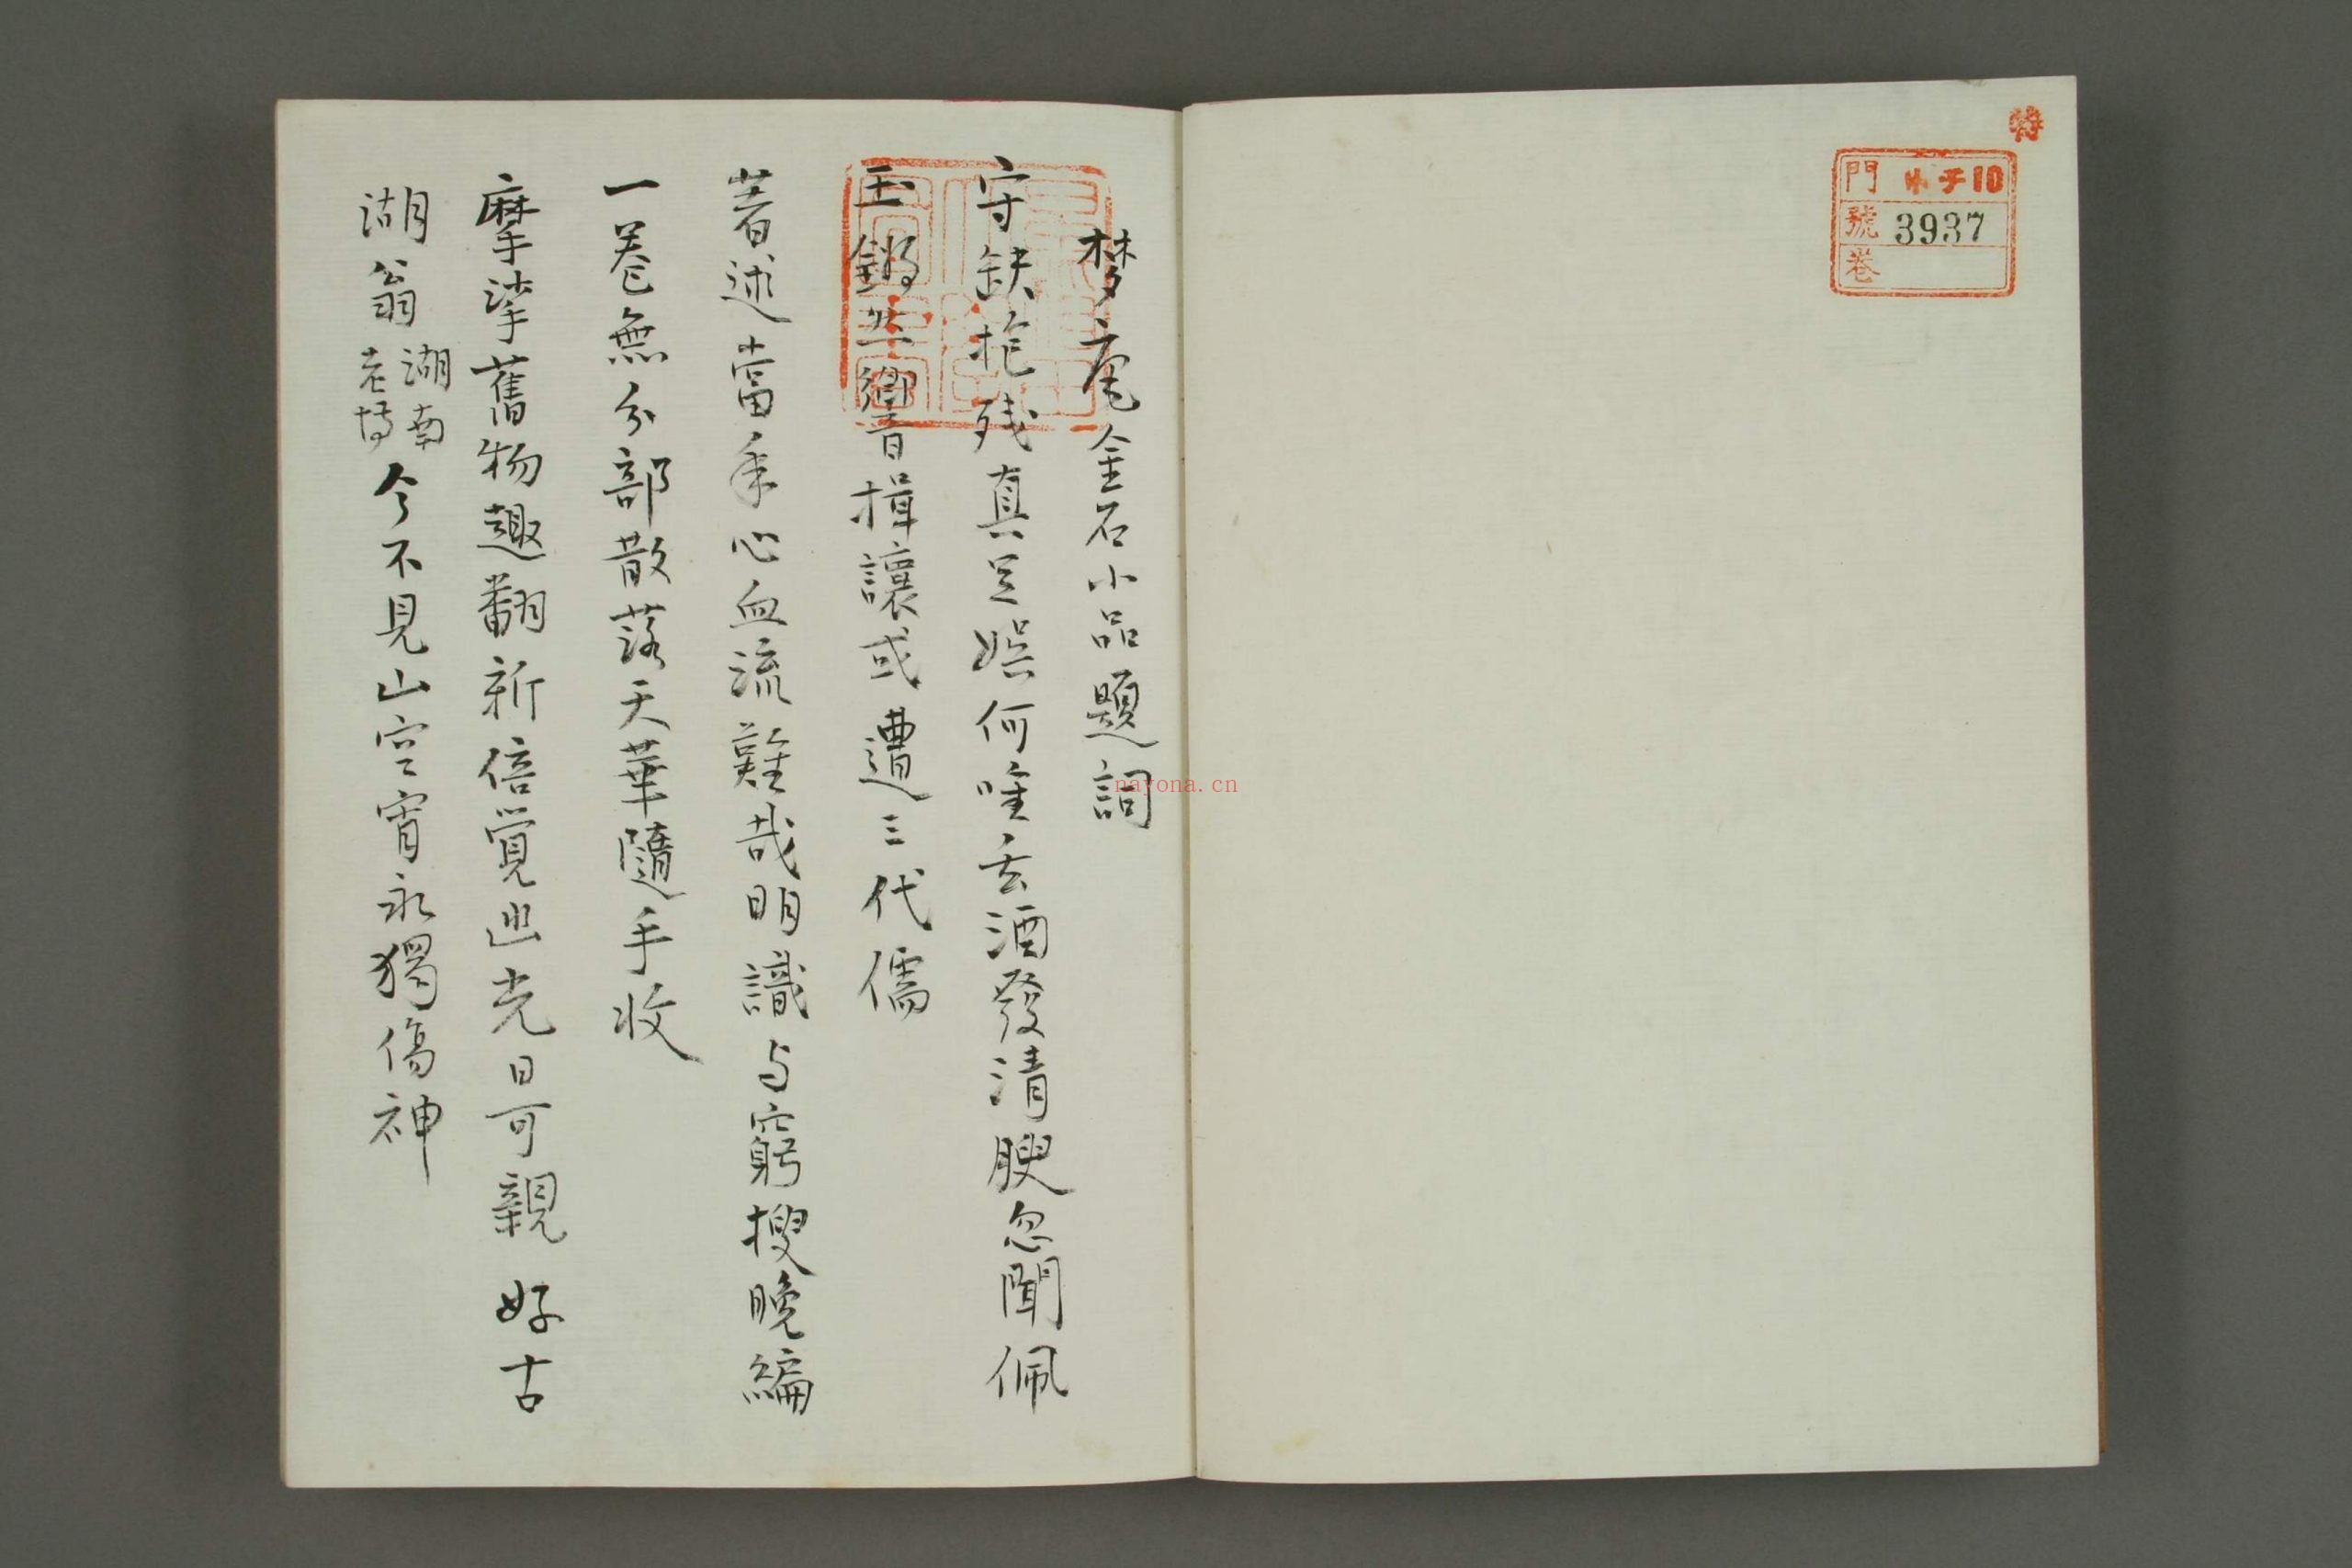 特
門 小子10
號 3937
卷
梦庵金石小品題詞
守缺抱残真足娱何唯舌酒發清腴忽聞佩
玉鏘然響揖讓或遭三代儒
著述當年心血流難哉明識与窮搜晚編
一卷無分部散落天華隨手收
摩挲舊物趣翻新倍覺幽光日可親好古
湖翁湖南老博今不見山空宵永獨傷神
nayona.cn